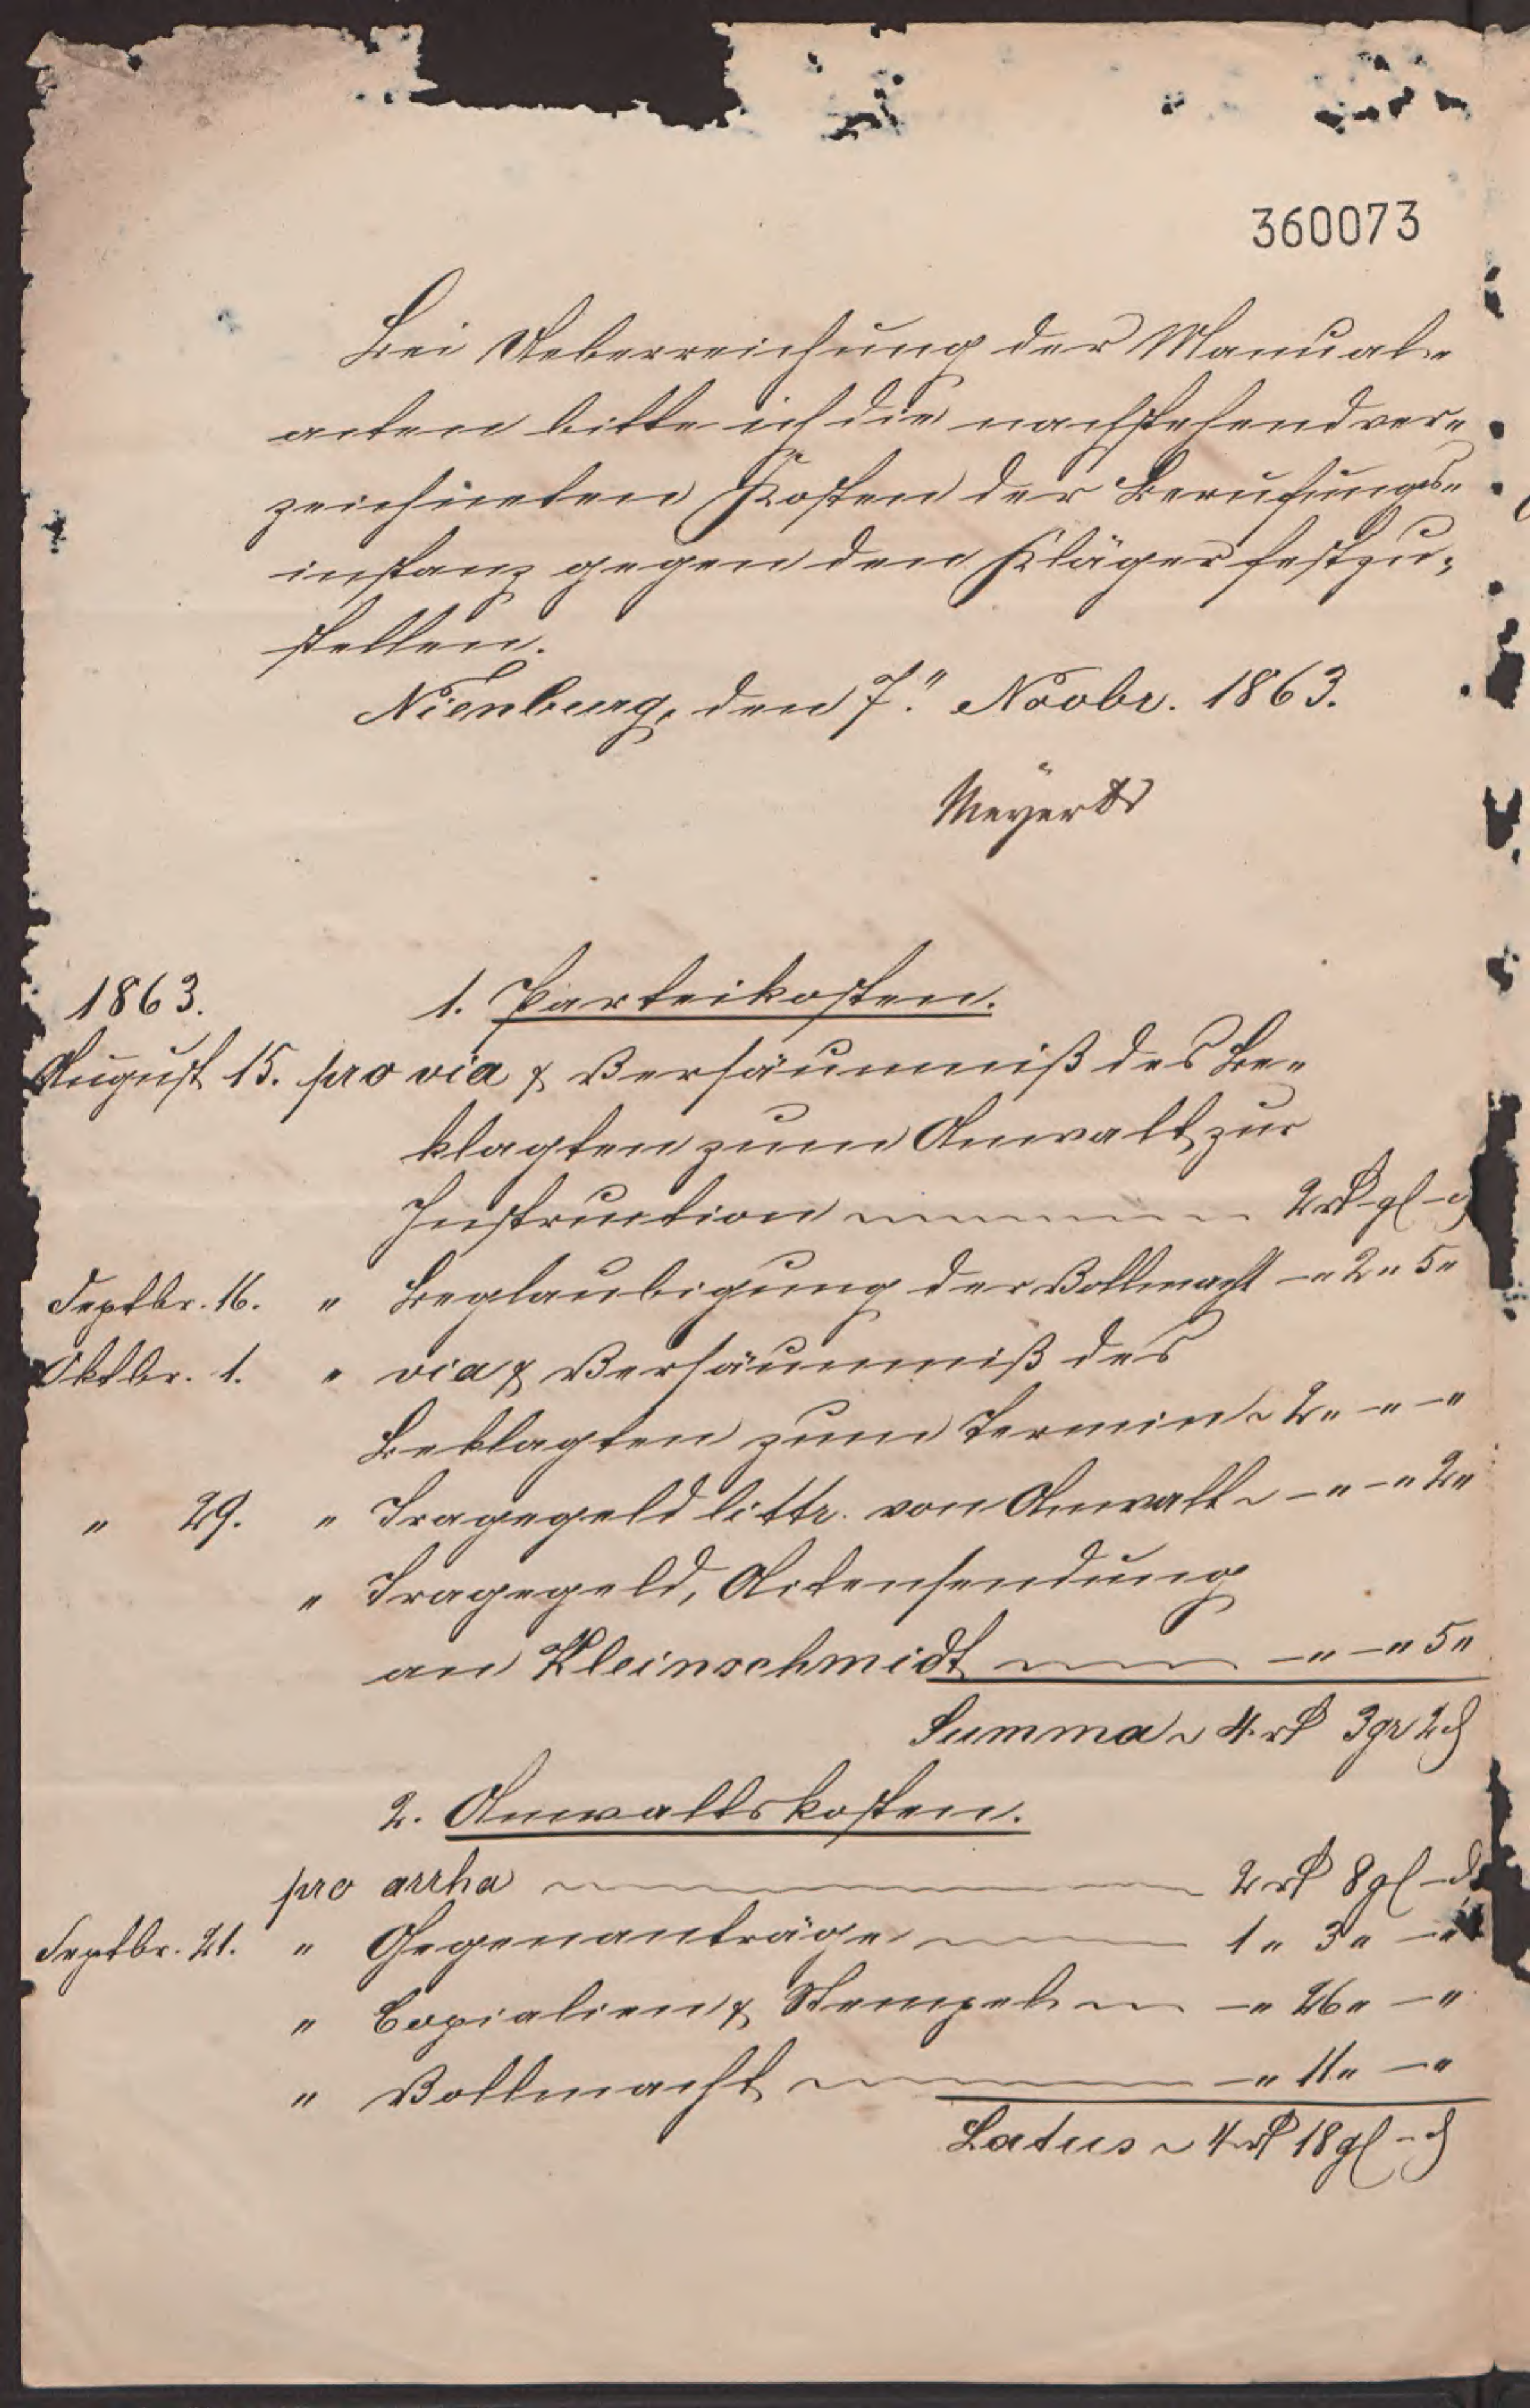 360073
Bei Ueberreichung der Manual-
acten bitte ich die nachstehend ver-
zeichneten Kosten der Berufungs-
instanz gegen den Kläger festzu-
stellen.
Nienburg, den 7." Novbr. 1863.
Meyer Dr
1863. 1. Parteikosten.
August 15. pro via & Versäumniß des Be-
klagten zum Anwalt zur
Instruction 2 rt - gl - d
Septbr. 16. " Beglaubigung der Vollmacht - " 2 " 5 "
Oktbr. 1. " via & Versäumniß des
Beklagten zum Termin 2 " - " - "
" 29. " Tragegeld littr. von Anwalt - " - " 2 "
" Tragegeld, Actensendung
an Kleinschmidt - " - " 5 "
Summa 4 rt 3 gr 2 d
2. Anwaltskosten.
pro arrha 2 rt 8 gl - d
Septbr. 21. " Gegenanträge 1 " 3 " - "
" Copialien & Stempel - " 26 " - "
" Vollmacht - " 11 " - "
Latus 4 rt 18 gl - d